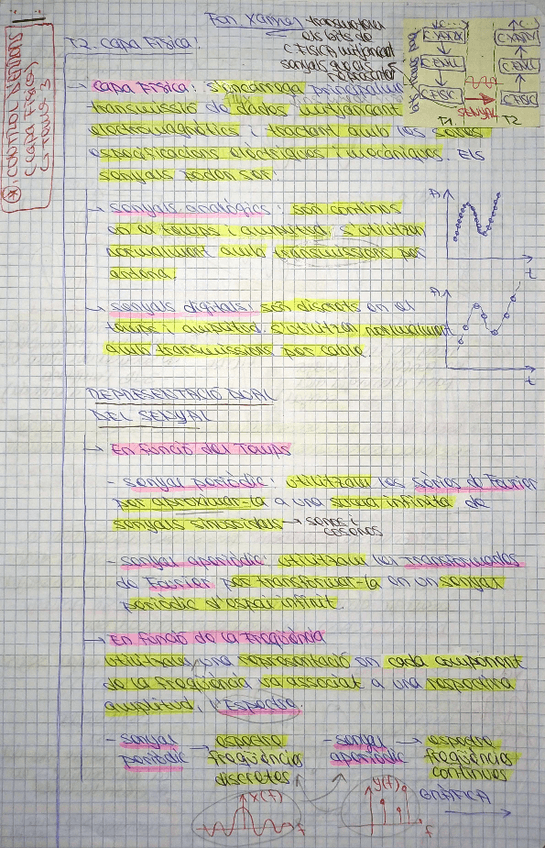 T2. Capa Física:
Fan Xarxes
transmetem
els bits de
C FÍSICA mitjançant
senyals que els
C XARXA
C ENLL
C FÍSIC
T1
SENYAL
C XARX
C ENLL
C FÍSIC
T2
CONTROL D'ERRORS
(capa Física)
→ capa Física: s'encarrega
transmissió de dades mitjançant
electromagnètics i tractant amb les
especificacions elèctriques i mecàniques. Els
senyals poden ser:
→ senyals analògics: són continus
en el temps i amplitud. S'utilitzen
normalment amb transmissions per
antena.
A
t
→ senyals digitals: són discrets en el
temps i amplitud. S'utilitzen normalment
amb transmissions per cable.
A
t
REPRESENTACIÓ DUAL
DEL SENYAL
→ En funció del Temps
- senyal periòdic: utilitzem les sèries de Fourier
per aproximar-la a una suma infinita de
senyals sinusoidals → senos i
cosenos
- senyal aperiòdic: utilitzem les transformades
de Fourier per transformar-la en un senyal
periòdic d'espai infinit.
→ En funció de la Freqüència
utilitzem una representació on cada component
de la freqüència va associat a una respectiva
amplitud, l'Espectre.
- senyal periòdic → espectre freqüències discretes
- senyal aperiòdic → espectre freqüències contínues
X(f)
f
Y(f)
f
GRÀFICA